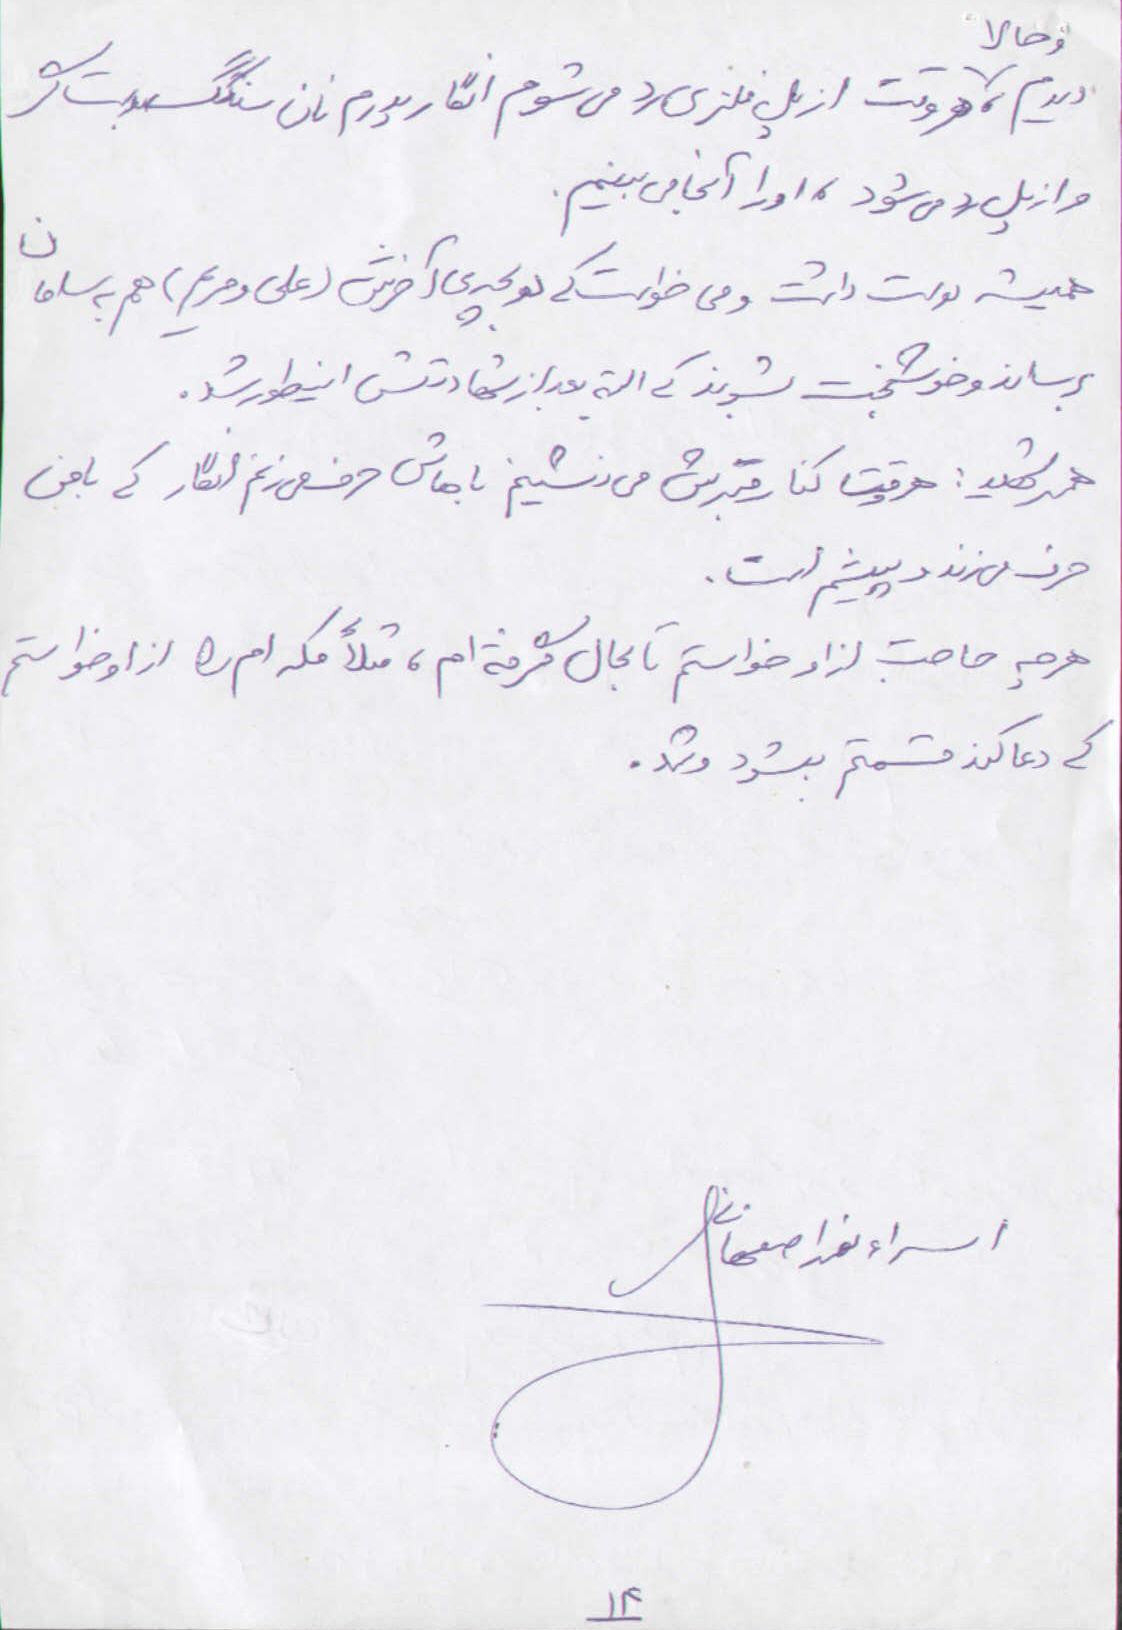 وحالا
دیدم، هروقت از پل فلزی رد می شوم انگار پدرم نان سنگک بدستش
و از پل رد می شود، او را آنجا می بینم.
همیشه دوست داشت و می خواست که دو بچه ی آخرش (علی و مریم) هم به سامان
برساند و خوشبخت بشوند که البته بعد از شهادتش اینطور شد.
همسر شهید: هروقت کنار قبرش می نشینم باهاش حرف می زنم انگار که با من
حرف می زند و پیشم است.
هرچه حاجت از او خواستم تا بحال گرفته ام، مثلاً مکه ام را از او خواستم
که دعا کند قسمتم بشود و شد.
اسراء نصر اصفهانی
۱۴